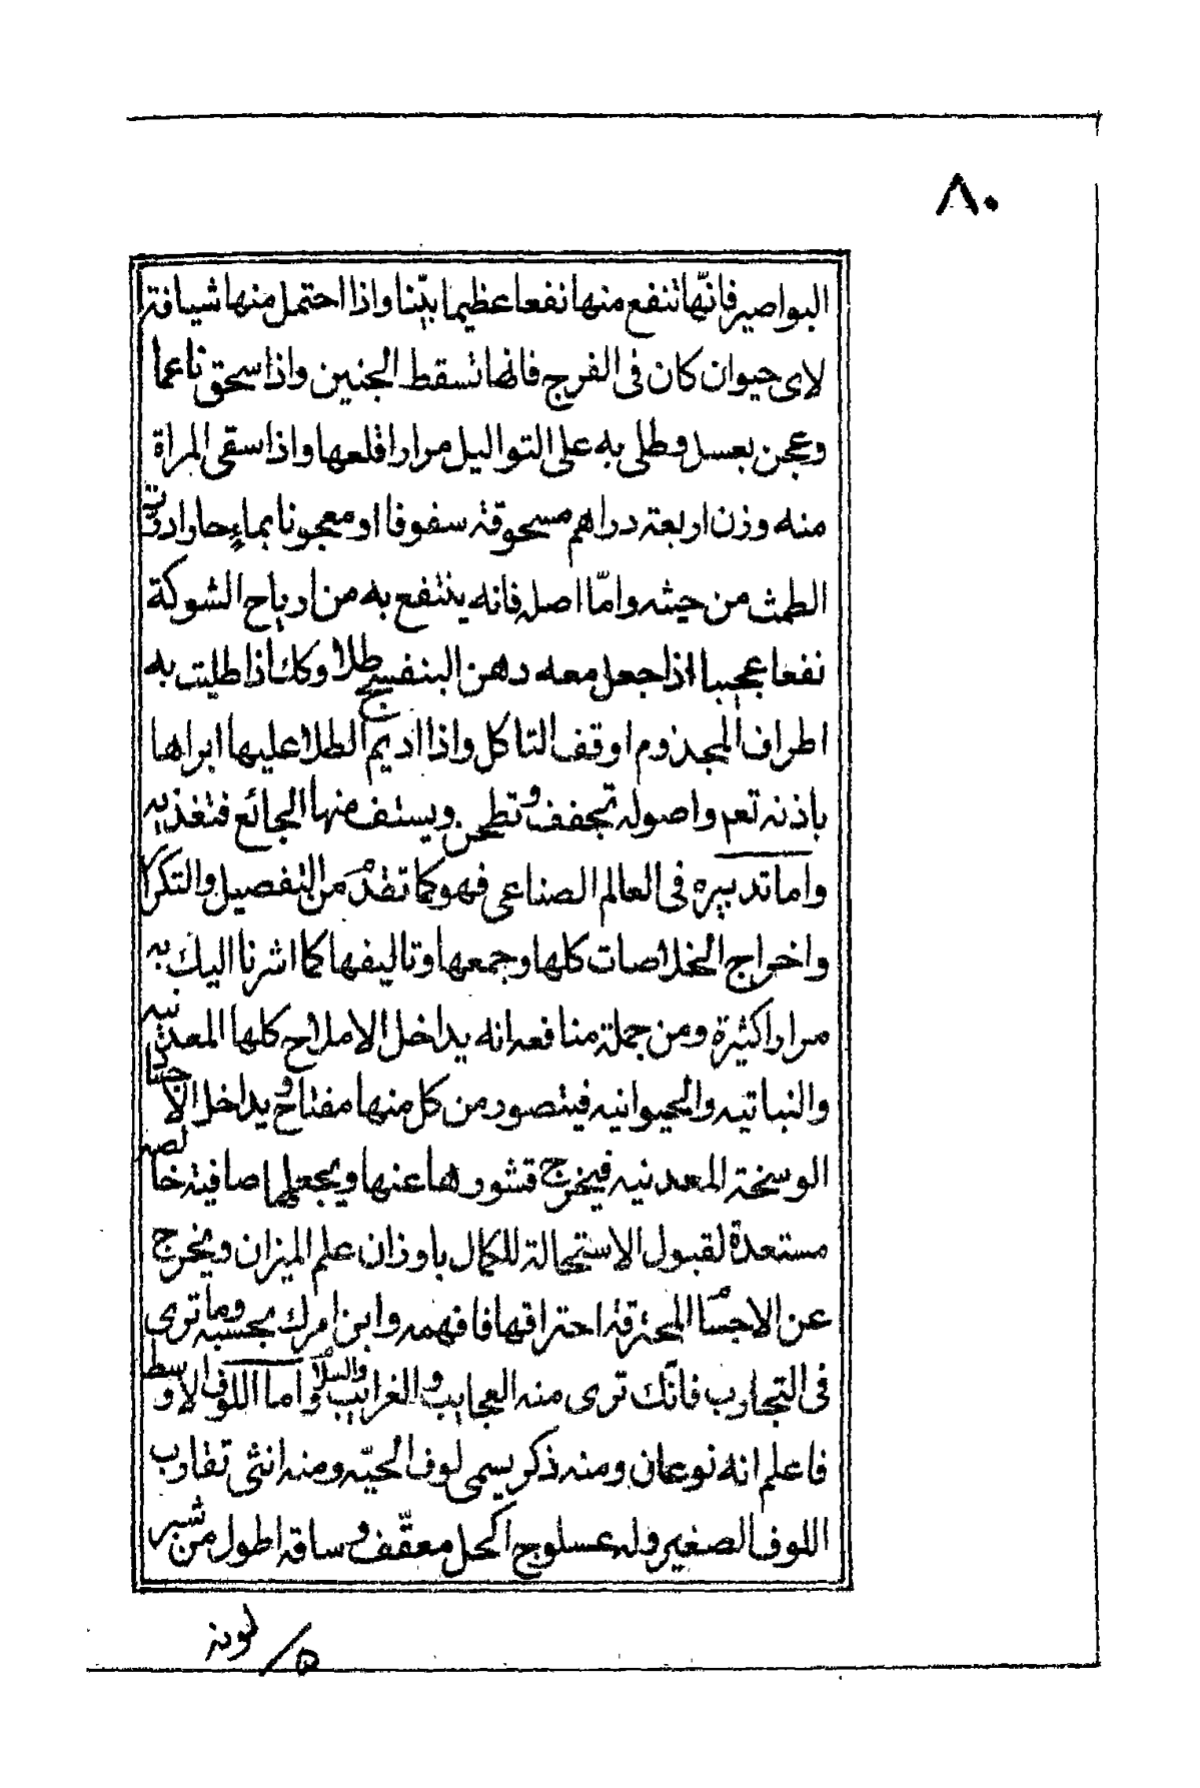 ٨٠
البواصير فانّها تنفع منها نفعا عظيما بيّنا واذا احتمل منها شيافة
لاى حيوان كان فى الفرج فانها تسقط الجنين واذا سحق ناعما
وعجن بعسل وطلى به على التواليل مرارا قلعها واذا سقى المراة
منه وزن اربعة دراهم مسحوقة سفوفا او معجونا بماءٍ حار ادرّت
الطمث من حيثه وامّا اصله فانه ينتفع به من ارياح الشوكة
نفعا عجيبا اذا جعل معه دهن البنفسج طلا وكك اذا طليت به
اطراف المجذوم اوقف التاكل واذا اديم الطلا عليها ابراها
باذنه تعم واصوله تجفف وتطحن ويستف منها الجائع فتغذيه
واما تدبيره فى العالم الصناعى فهو كما تقدم من التفصيل والتكرا
واخراج الخلاصات كلها وجمعها وتاليفها كما اشرنا اليك به
مرارا كثيرة ومن جملة منافعه انه يداخل الاملاح كلها المعدنيه
والنباتيه والحيوانيه فيتصور من كل منها مفتاح ويداخل الاجسا
الوسخة المعدنيه فيخرج قشورها عنها ويجعلها صافية خالصه
مستعدة لقبول الاستحالة للكمال باوزان علم الميزان ويخرج
عن الاجسام المحترقة احتراقها فافهمه وابن امرك بحسبه وما ترى
فى التجارب فانّك ترى منه العجايب والغرايب والسلام واما اللوف الاوسط
فاعلم انه نوعان ومنه ذكر يسمى لوف الحيّه ومنه انثى تقارب
اللوف الصغير وله عسلوج اكحل معقّف وساقه اطول من شبر
لونه